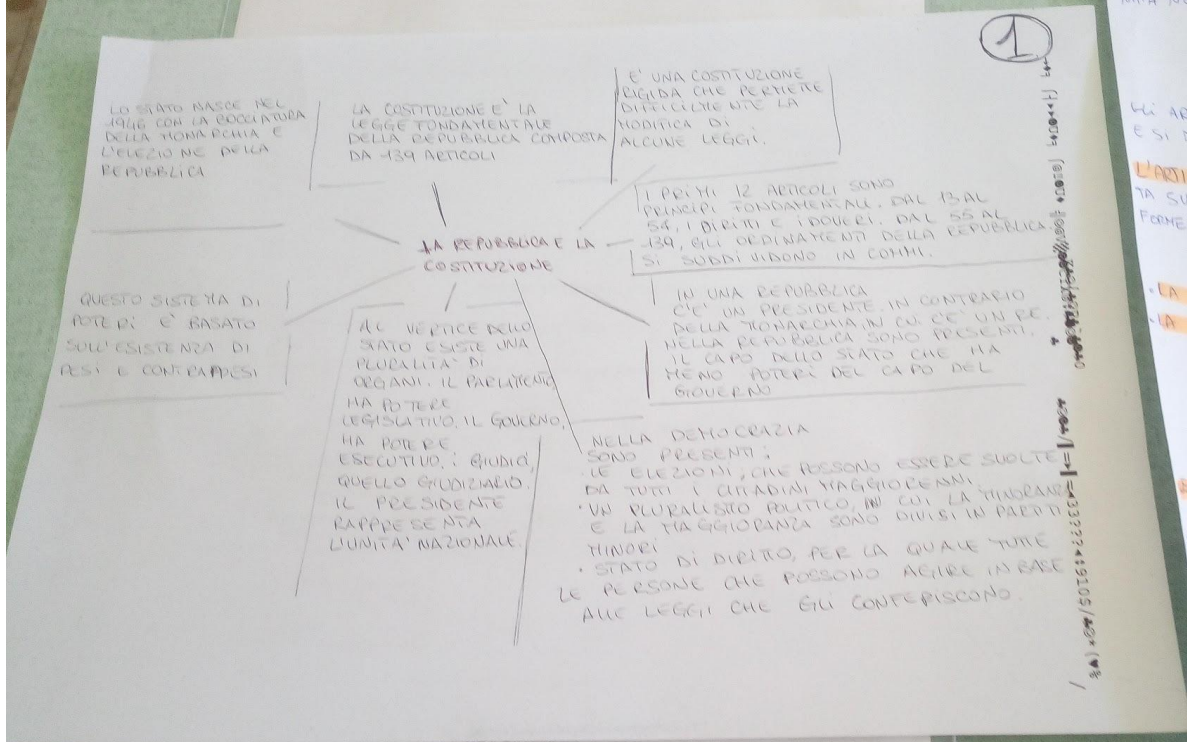 1
LO STATO NASCE NEL
1946 CON LA BOCCIATURA
DELLA MONARCHIA E
L'ELEZIONE DELLA
REPUBBLICA
LA COSTITUZIONE E' LA
LEGGE FONDAMENTALE
DELLA REPUBBLICA COMPOSTA
DA 139 ARTICOLI
E' UNA COSTITUZIONE
RIGIDA CHE PERMETTE
DIFFICILMENTE LA
MODIFICA DI
ALCUNE LEGGI.
I PRIMI 12 ARTICOLI SONO
PRINCIPI FONDAMENTALI. DAL 13 AL
54, I DIRITTI E I DOVERI. DAL 55 AL
139, GLI ORDINAMENTI DELLA REPUBBLICA.
SI SUDDIVIDONO IN COMMI.
LA REPUBBLICA E LA
COSTITUZIONE
QUESTO SISTEMA DI
POTERI E' BASATO
SULL'ESISTENZA DI
PESI E CONTRAPPESI
AL VERTICE DELLO
STATO ESISTE UNA
PLURALITA' DI
ORGANI. IL PARLAMENTO
HA POTERE
LEGISLATIVO, IL GOVERNO,
HA POTERE
ESECUTIVO, i GIUDICI,
QUELLO GIUDIZIARIO.
IL PRESIDENTE
RAPPRESENTA
L'UNITA' NAZIONALE.
IN UNA REPUBBLICA
C'E' UN PRESIDENTE. IN CONTRARIO
DELLA MONARCHIA, IN CUI C'E' UN RE.
NELLA REPUBBLICA SONO PRESENTI.
IL CAPO DELLO STATO CHE HA
MENO POTERI DEL CAPO DEL
GOVERNO
NELLA DEMOCRAZIA
SONO PRESENTI:
· LE ELEZIONI, CHE POSSONO ESSERE SVOLTE
DA TUTTI I CITTADINI MAGGIORENNI
· UN PLURALISMO POLITICO, IN CUI LA MINORANZA
E LA MAGGIORANZA SONO DIVISI IN PARTITI
MINORI
· STATO DI DIRITTO, PER LA QUALE TUTTE
LE PERSONE CHE POSSONO AGIRE IN BASE
ALLE LEGGI CHE GLI CONFERISCONO.
E SI
L'ARTI
TA SU
FORME
· LA
· LA